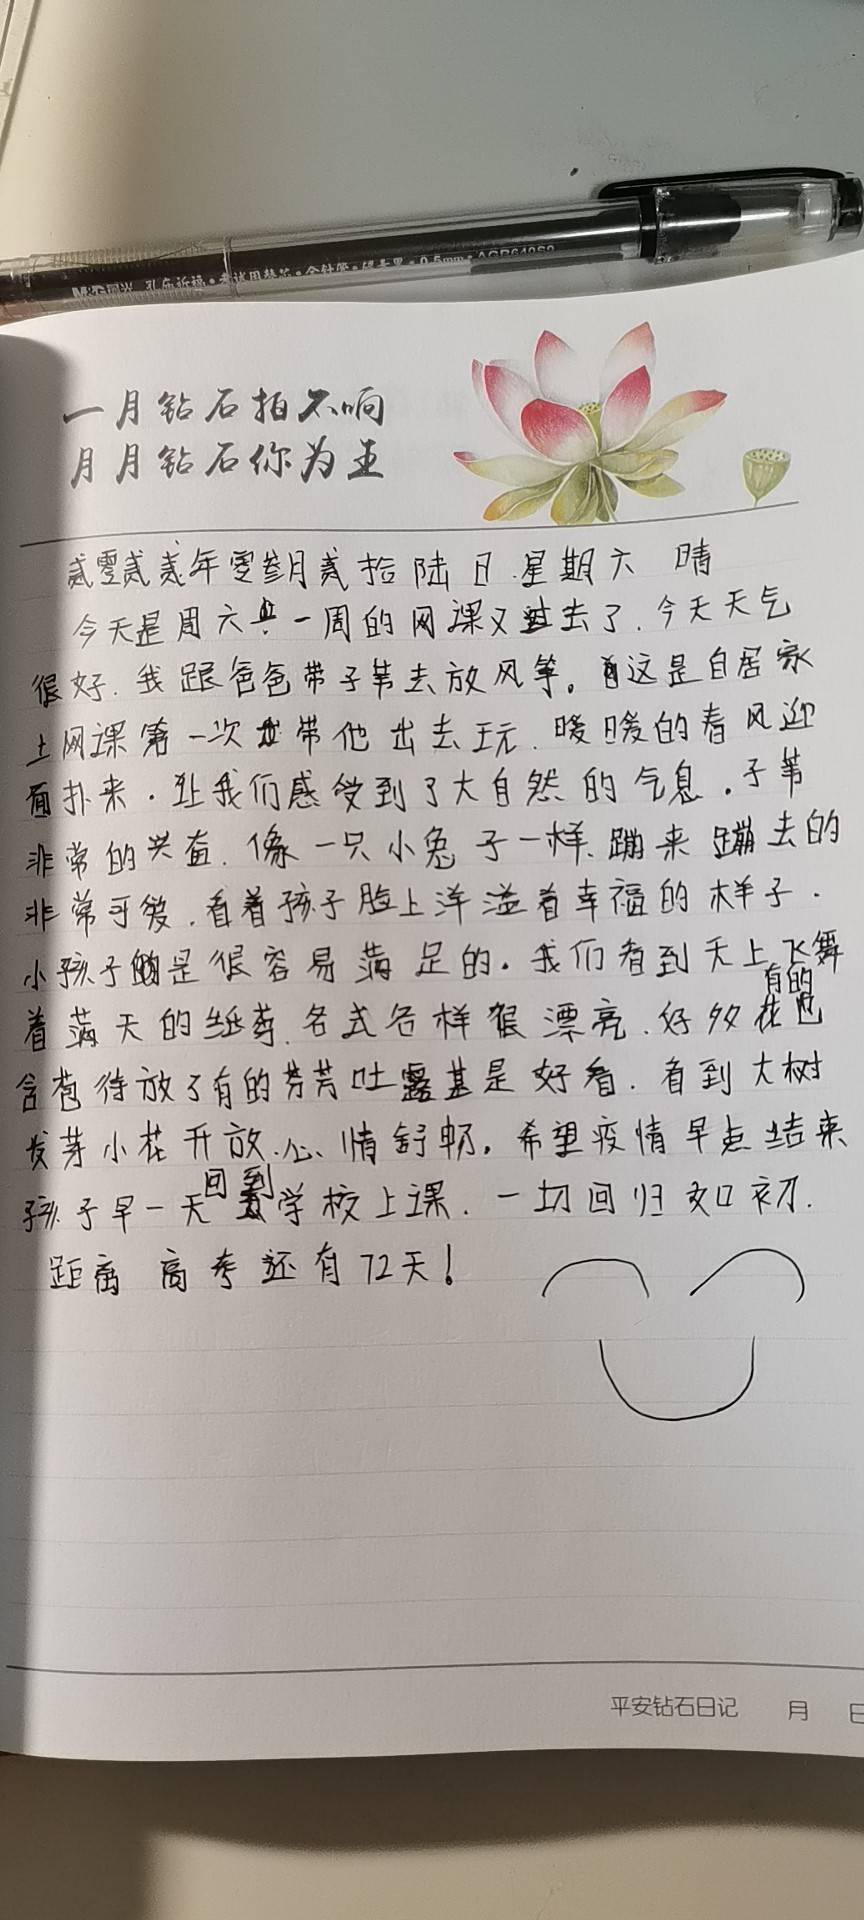 孔庙祈福·考试用替芯·全针管·碳素黑·0.5mm·AGR640S9
一月钻石拍不响
月月钻石你为王
贰零贰贰年零叁月贰拾陆日.星期六 晴
今天是周六一周的网课又过去了.今天天气
很好.我跟爸爸带子苇去放风筝。这是自居家
上网课第一次带他出去玩.暖暖的春风迎
面扑来.让我们感受到了大自然的气息.子苇
非常的兴奋.像一只小兔子一样.蹦来蹦去的
非常可爱.看着孩子脸上洋溢着幸福的样子.
小孩子是很容易满足的.我们看到天上飞舞
着满天的纸鸢.各式各样很漂亮.好多花有的
含苞待放了有的芬芳吐露甚是好看.看到大树
发芽小花开放.心情舒畅.希望疫情早点结束
孩子早一天回到学校上课.一切回归如初.
距离高考还有72天!
平安钻石日记 月 日